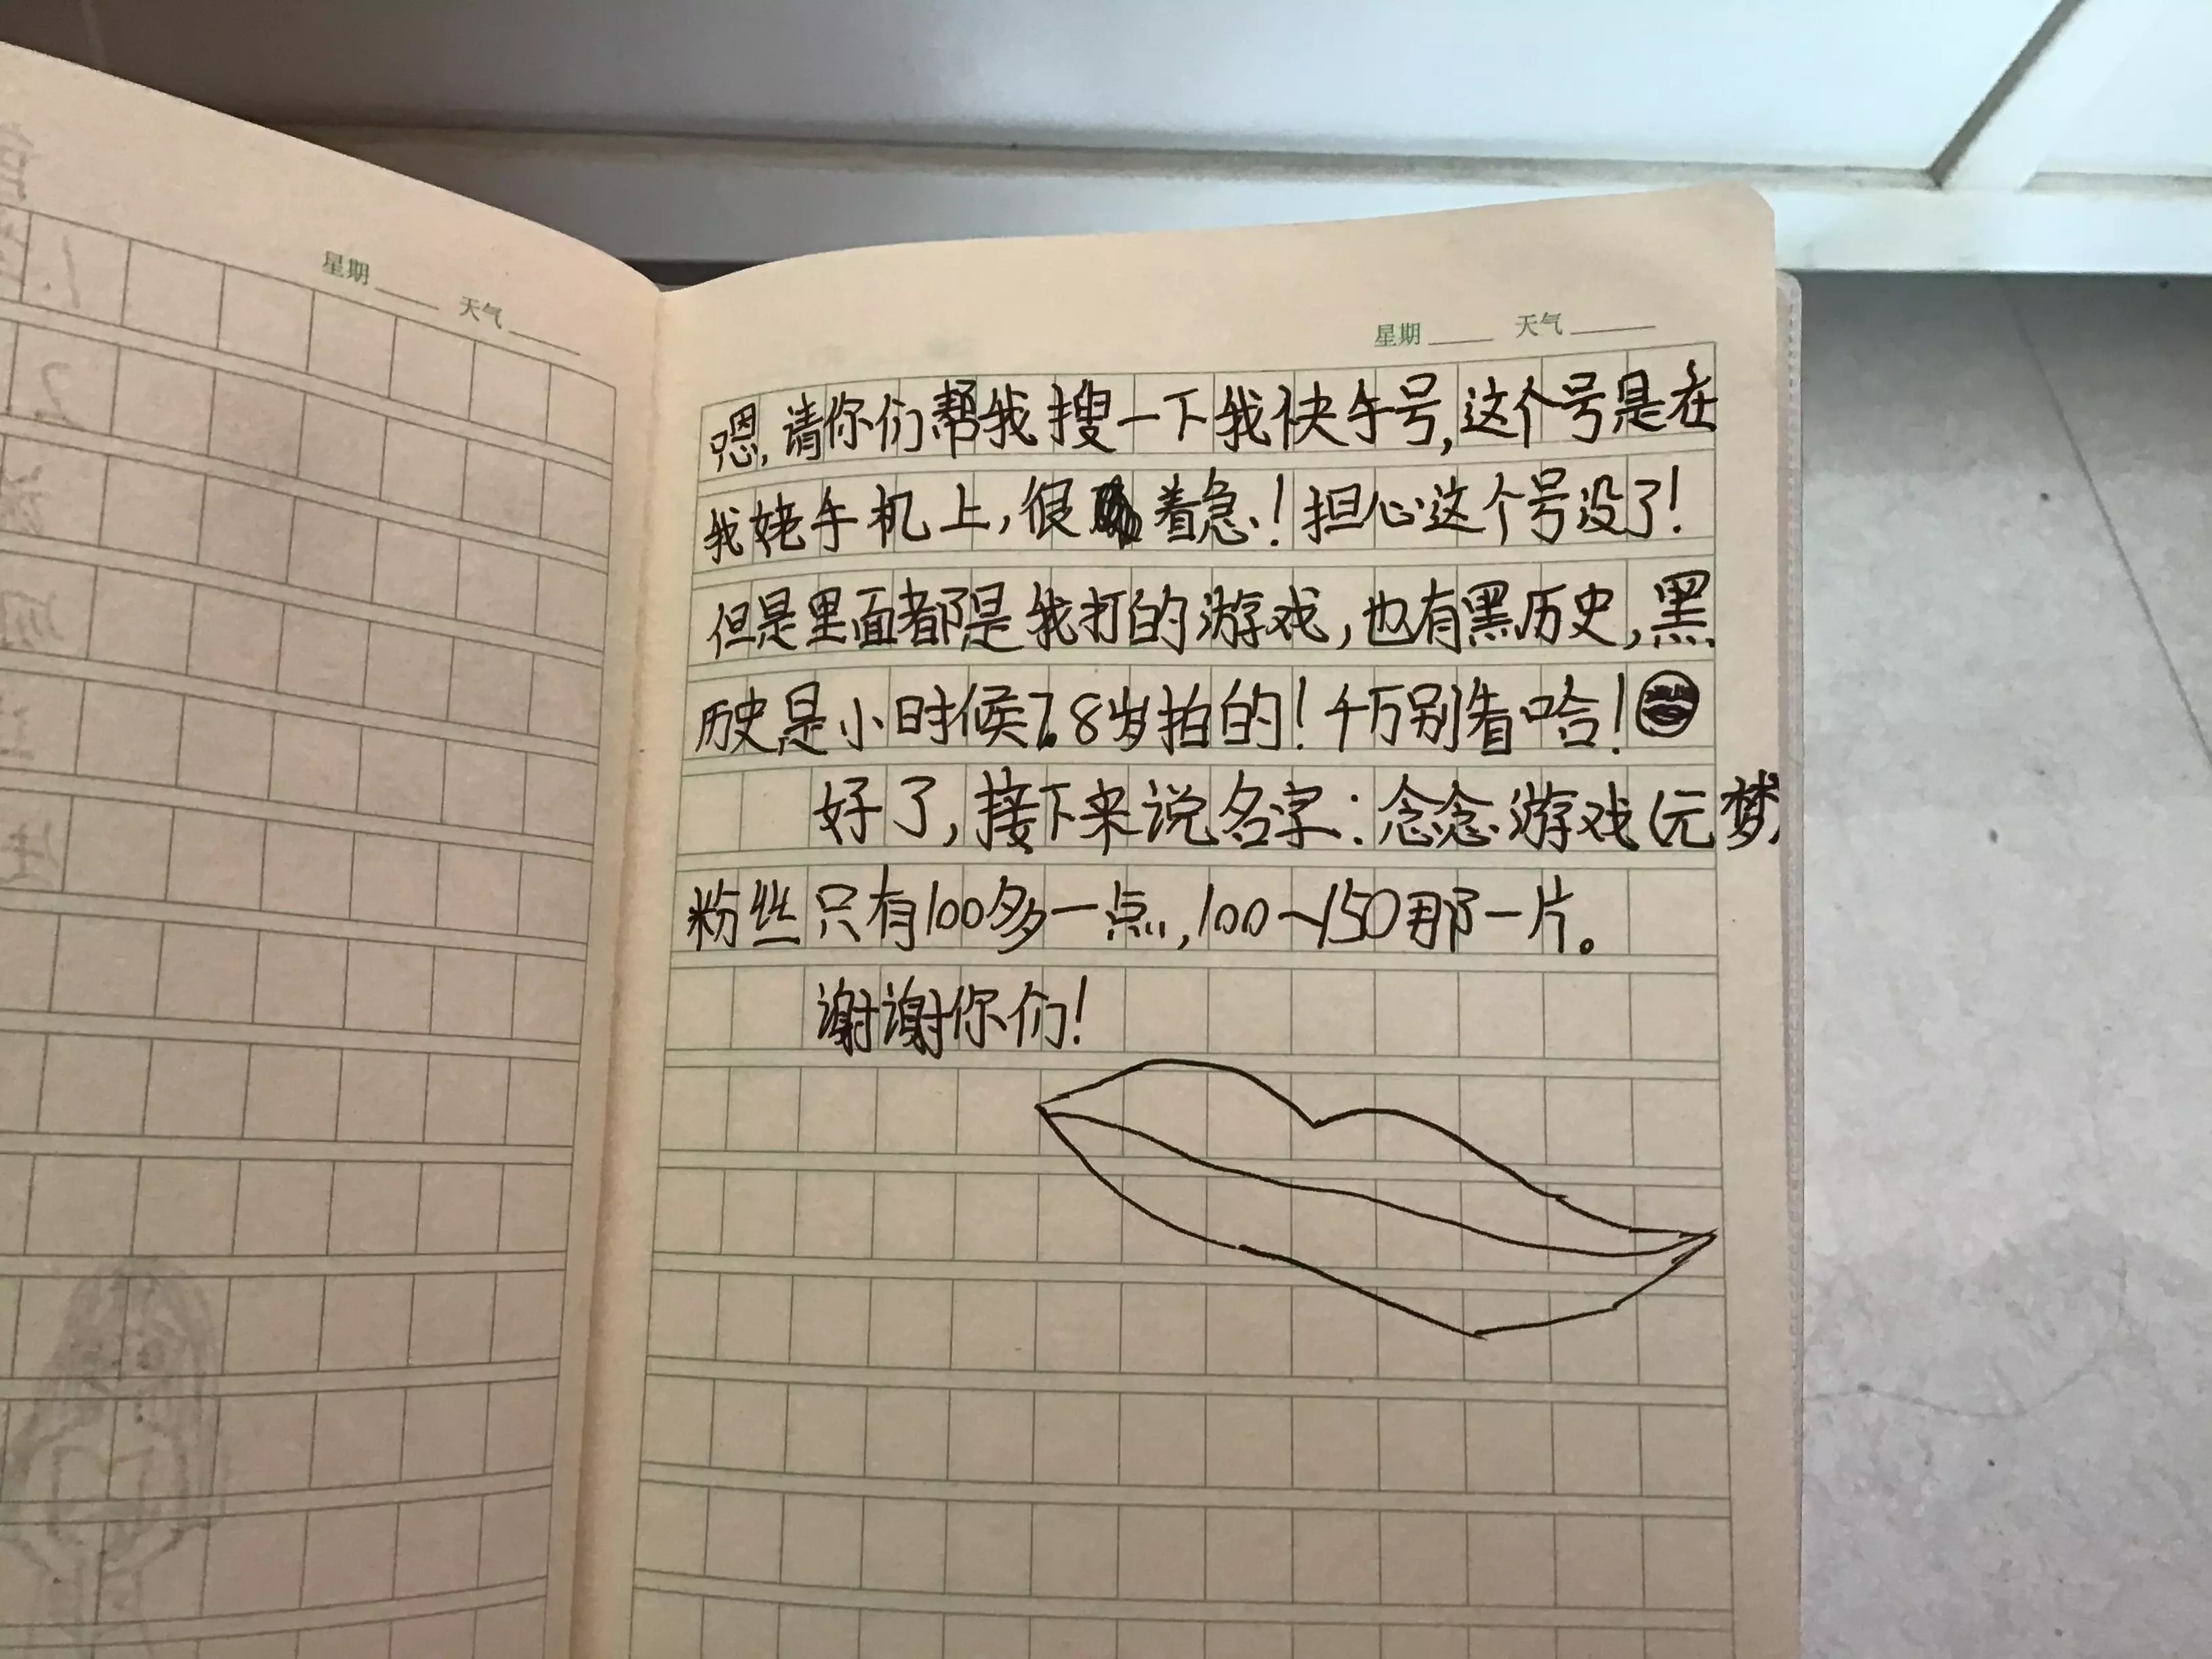 星期 天气
星期 天气
嗯,请你们帮我搜一下我快手号,这个号是在
我姥手机上,很着急!担心这个号没了!
但是里面都是我打的游戏,也有黑历史,黑
历史是小时候7.8岁拍的!千万别看哈!
好了,接下来说名字:念念游戏(元梦)
粉丝只有100多一点,100~150那一片。
谢谢你们!